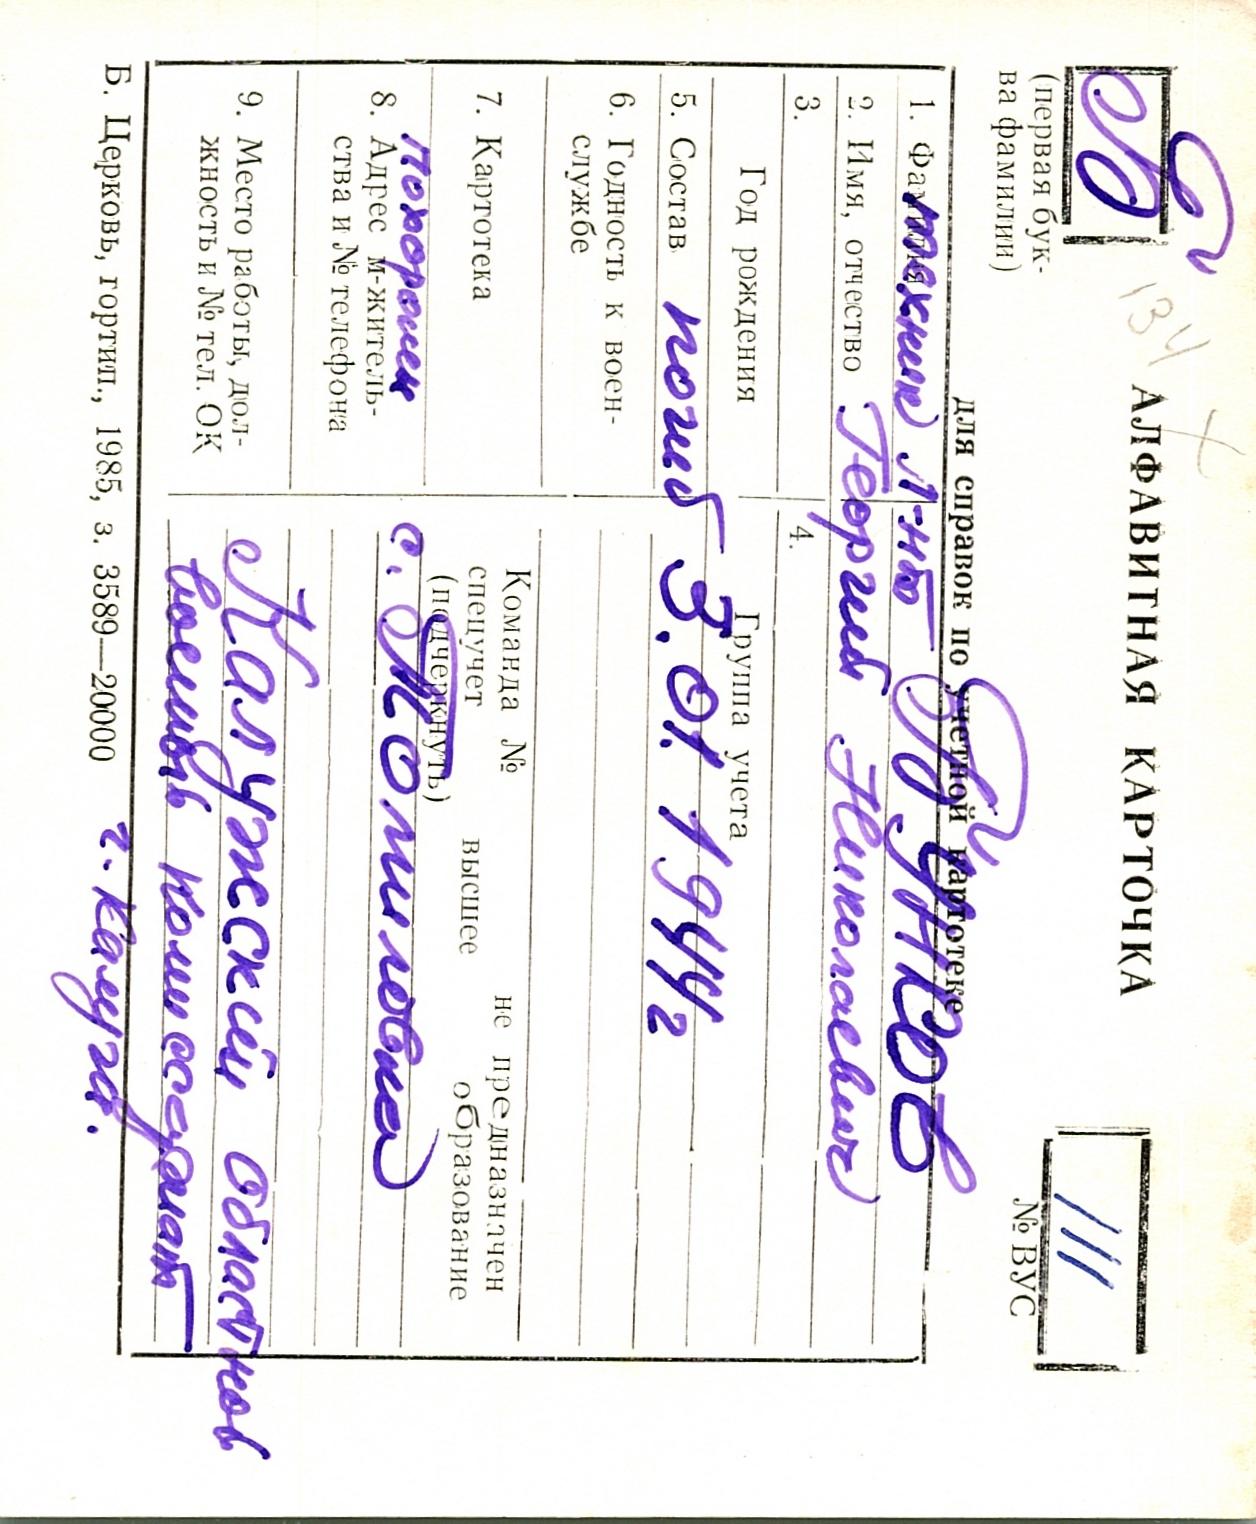 Б
134
(первая бук-
ва фамилии)
АЛФАВИТНАЯ КАРТОЧКА
для справок по учетной картотеке
111
№ ВУС
1. Фамилия техник Л-нт Бунков
2. Имя, отчество Георгий Николаевич
3.
4.
Год рождения
Группа учета
5. Состав погиб 3.01.1944г
6. Годность к воен-
службе
7. Картотека
Команда № не предназначен
спецучет высшее образование
(подчеркнуть)
похоронен с. Томиловка
8. Адрес м-житель-
ства и № телефона
9. Место работы, дол-
жность и № тел. ОК
Калужский областной
военный комиссариат
г. Калуга.
Б. Церковь, гортип., 1985, з. 3589—20000